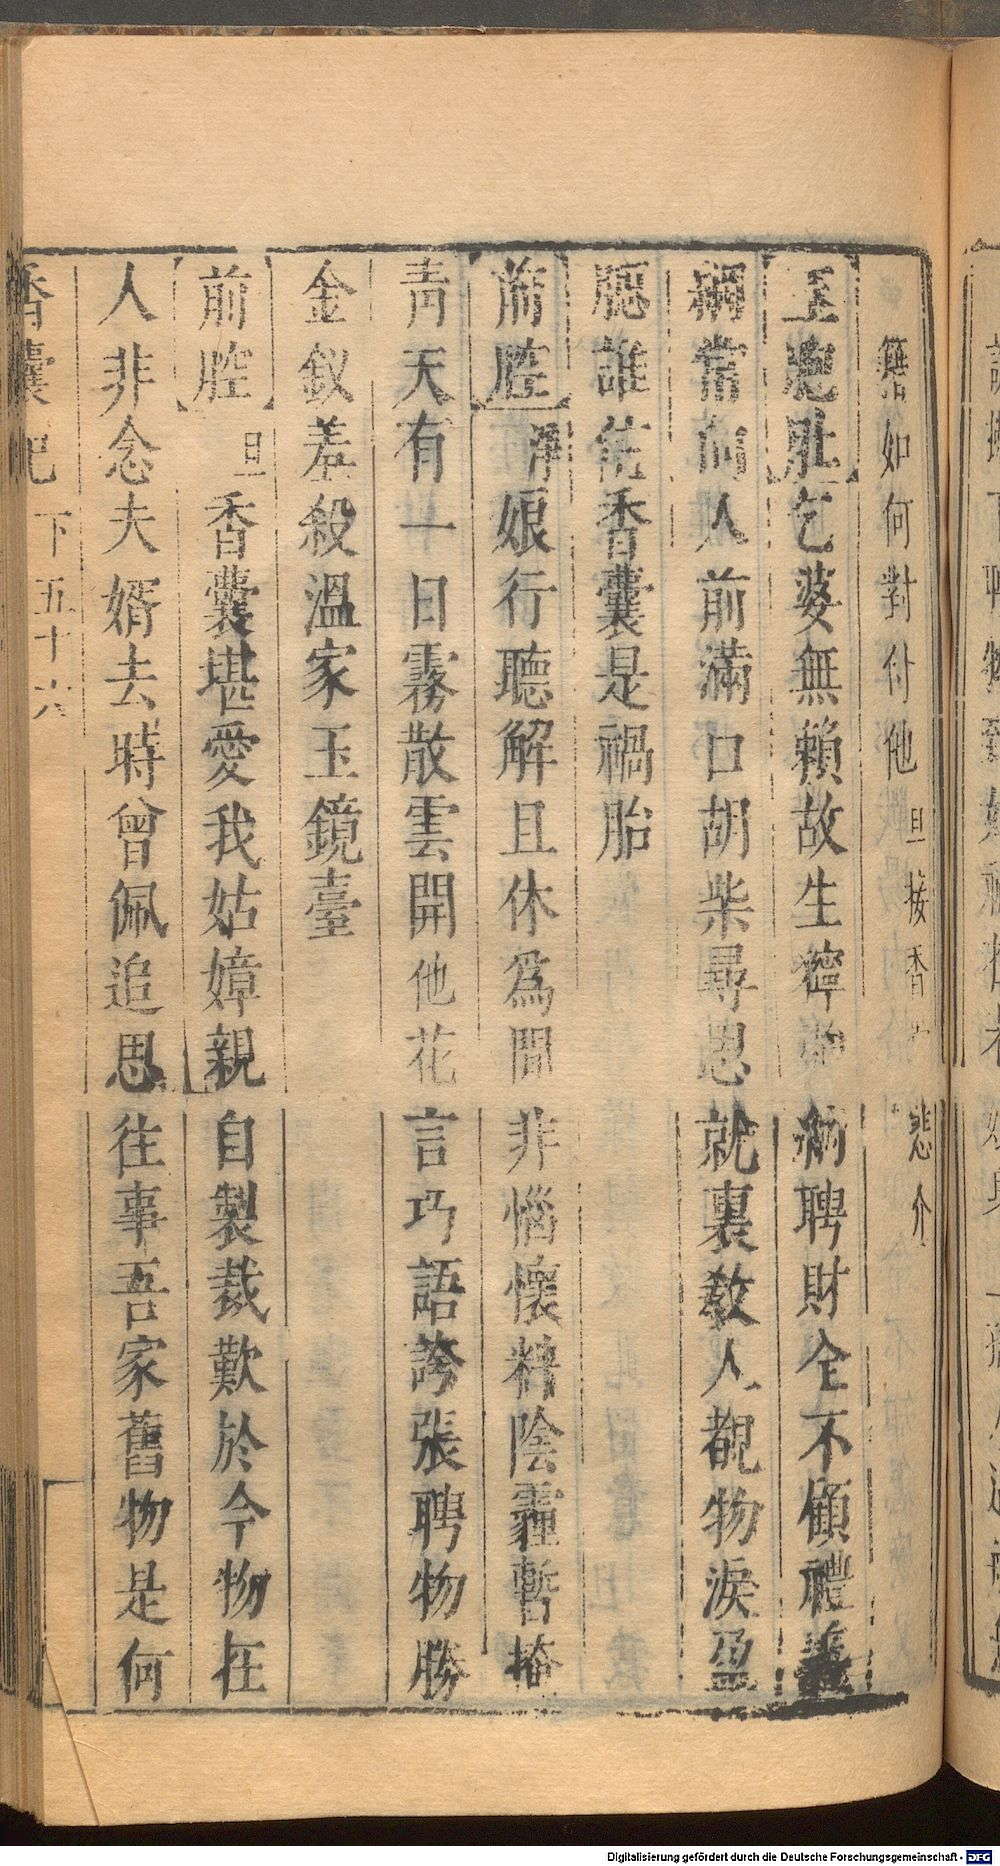 籍如何對付他 旦接香 悲介
玉胞肚 乞婆無賴故生 納聘財全不顧禮義
綱常向人前滿口胡柴尋思就裏教人覩物淚盈
腮誰信香囊是禍胎
前腔 淨 娘行聽解且休爲閒非惱懷料陰霾暫掩
青天有一日霧散雲開他花言巧語誇張聘物勝
金釵羞殺溫家玉鏡臺
前腔 旦 香囊堪愛我姑嫜親自製裁歎於今物在
人非念夫婿去時曾佩追思往事吾家舊物是何
香囊記 下 五十六
Digitalisierung gefördert durch die Deutsche Forschungsgemeinschaft - DFG